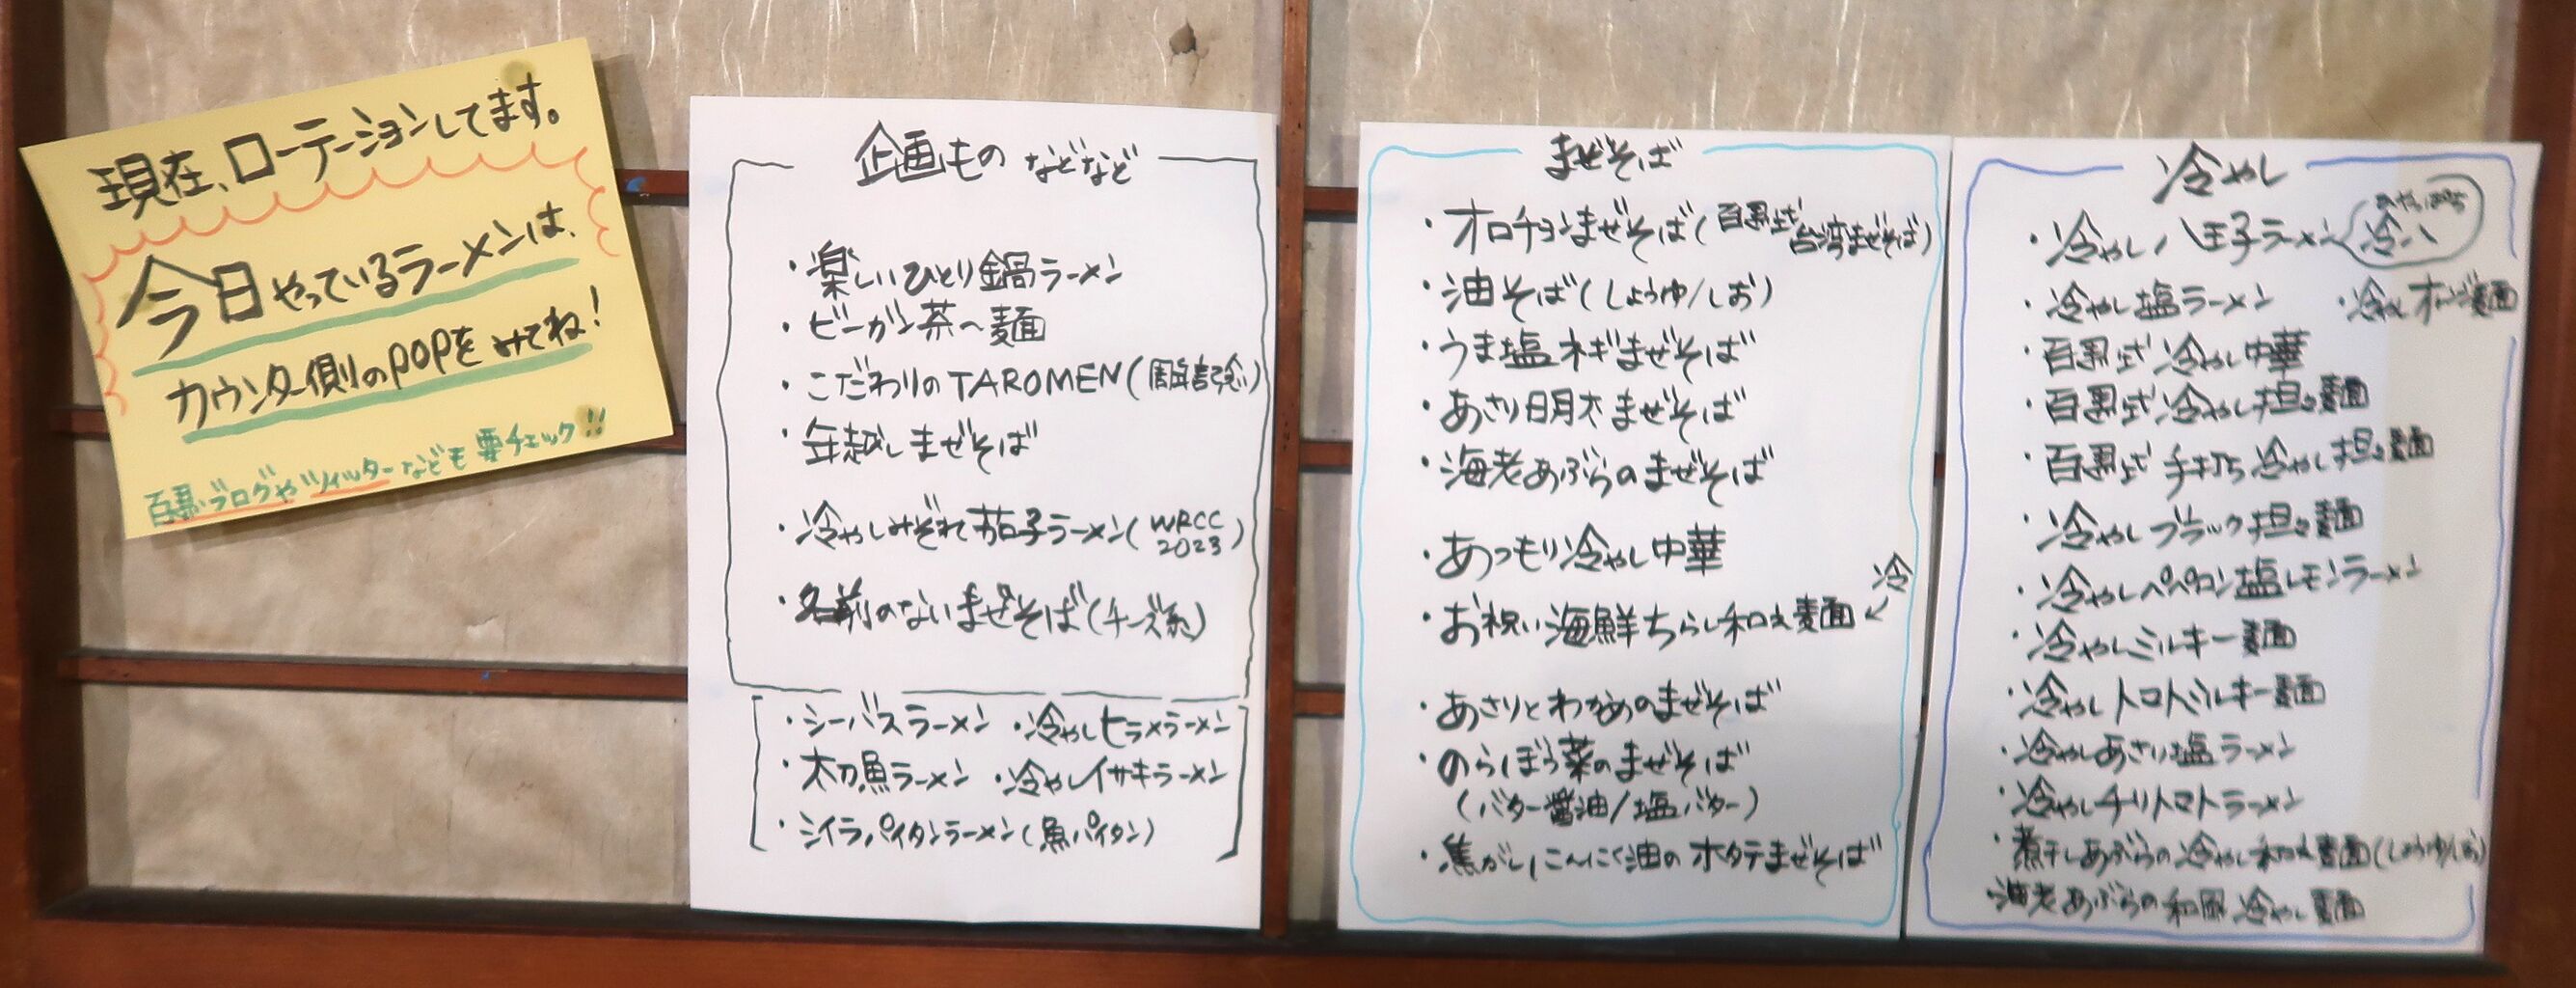 現在、ローテーションしてます。
今日やっているラーメンは、
カウンター側のPOPをみてね!
百黒ブログやツイッターなども要チェック!!
企画もの などなど
・楽しいひとり鍋ラーメン
・ビーガン茶〜麺
・こだわりのTAROMEN(周年記念)
・年越しまぜそば
・冷やしみぞれ茄子ラーメン(WRCC 2023)
・名前のないまぜそば(チーズ系)
・シーバスラーメン ・冷やしヒラメラーメン
・太刀魚ラーメン ・冷やしイサキラーメン
・シイラパイタンラーメン(魚パイタン)
まぜそば
・オロチョンまぜそば(百黒式台湾まぜそば)
・油そば(しょうゆ/しお)
・うま塩ネギまぜそば
・あさり明太まぜそば
・海老あぶらのまぜそば
・あつもり冷やし中華
冷
・お祝い海鮮ちらし和え麺
・あさりとわかめのまぜそば
・のらぼう菜のまぜそば
(バター醤油/塩バター)
・焦がしにんにく油のホタテまぜそば
冷やし
ひやっぱち
・冷やし八王子ラーメン 冷八
・冷やし塩ラーメン ・冷やしオレンジ麺
・百黒式冷やし中華
・百黒式冷やし担々麺
・百黒式手打ち冷やし担々麺
・冷やしブラック担々麺
・冷やしペペロン塩レモンラーメン
・冷やしミルキー麺
・冷やしトマトミルキー麺
・冷やしあさり塩ラーメン
・冷やしチリトマトラーメン
・煮干しあぶらの冷やし和え麺(しょうゆ/しお)
・海老あぶらの和風冷やし麺